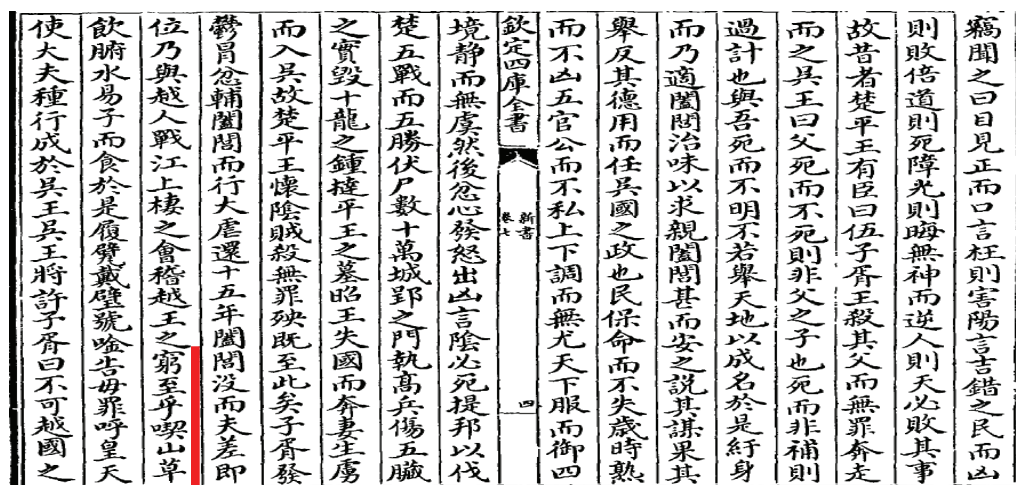 竊聞之曰目見正而口言枉則害陽言吉錯之民而凶
則敗倍道則死障光則晦無神而逆人則天必敗其事
故昔者楚平王有臣曰伍子胥王殺其父而無罪奔走
而之吳王曰父死而不死則非父之子也死而非補則
過計也與吾死而不明不若舉天地以成名於是紆身
而乃適闔閭治味以求親闔閭甚而安之說其謀果其
舉反其德用而任吳國之政也民保命而不失歲時熟
而不凶五官公而不私上下調而無尤天下服而御四
欽定四庫全書
新書
卷七
四
境静而無虞然後忿心發怒出凶言陰必死提邦以伐
楚五戰而五勝伏尸數十萬城郢之門執高兵傷五臟
之實毀十龍之鍾撻平王之墓昭王失國而奔妻生虜
而入吳故楚平王懷陰賊殺無罪殃既至此矣子胥發
鬱冒忿輔闔閭而行大虐還十五年闔閭沒而夫差即
位乃與越人戰江上棲之會稽越王之窮至乎喫山草
飲腑水易子而食於是履甓戴璧號唫告毋罪呼皇天
使大夫種行成於吳王吳王將許子胥曰不可越國之